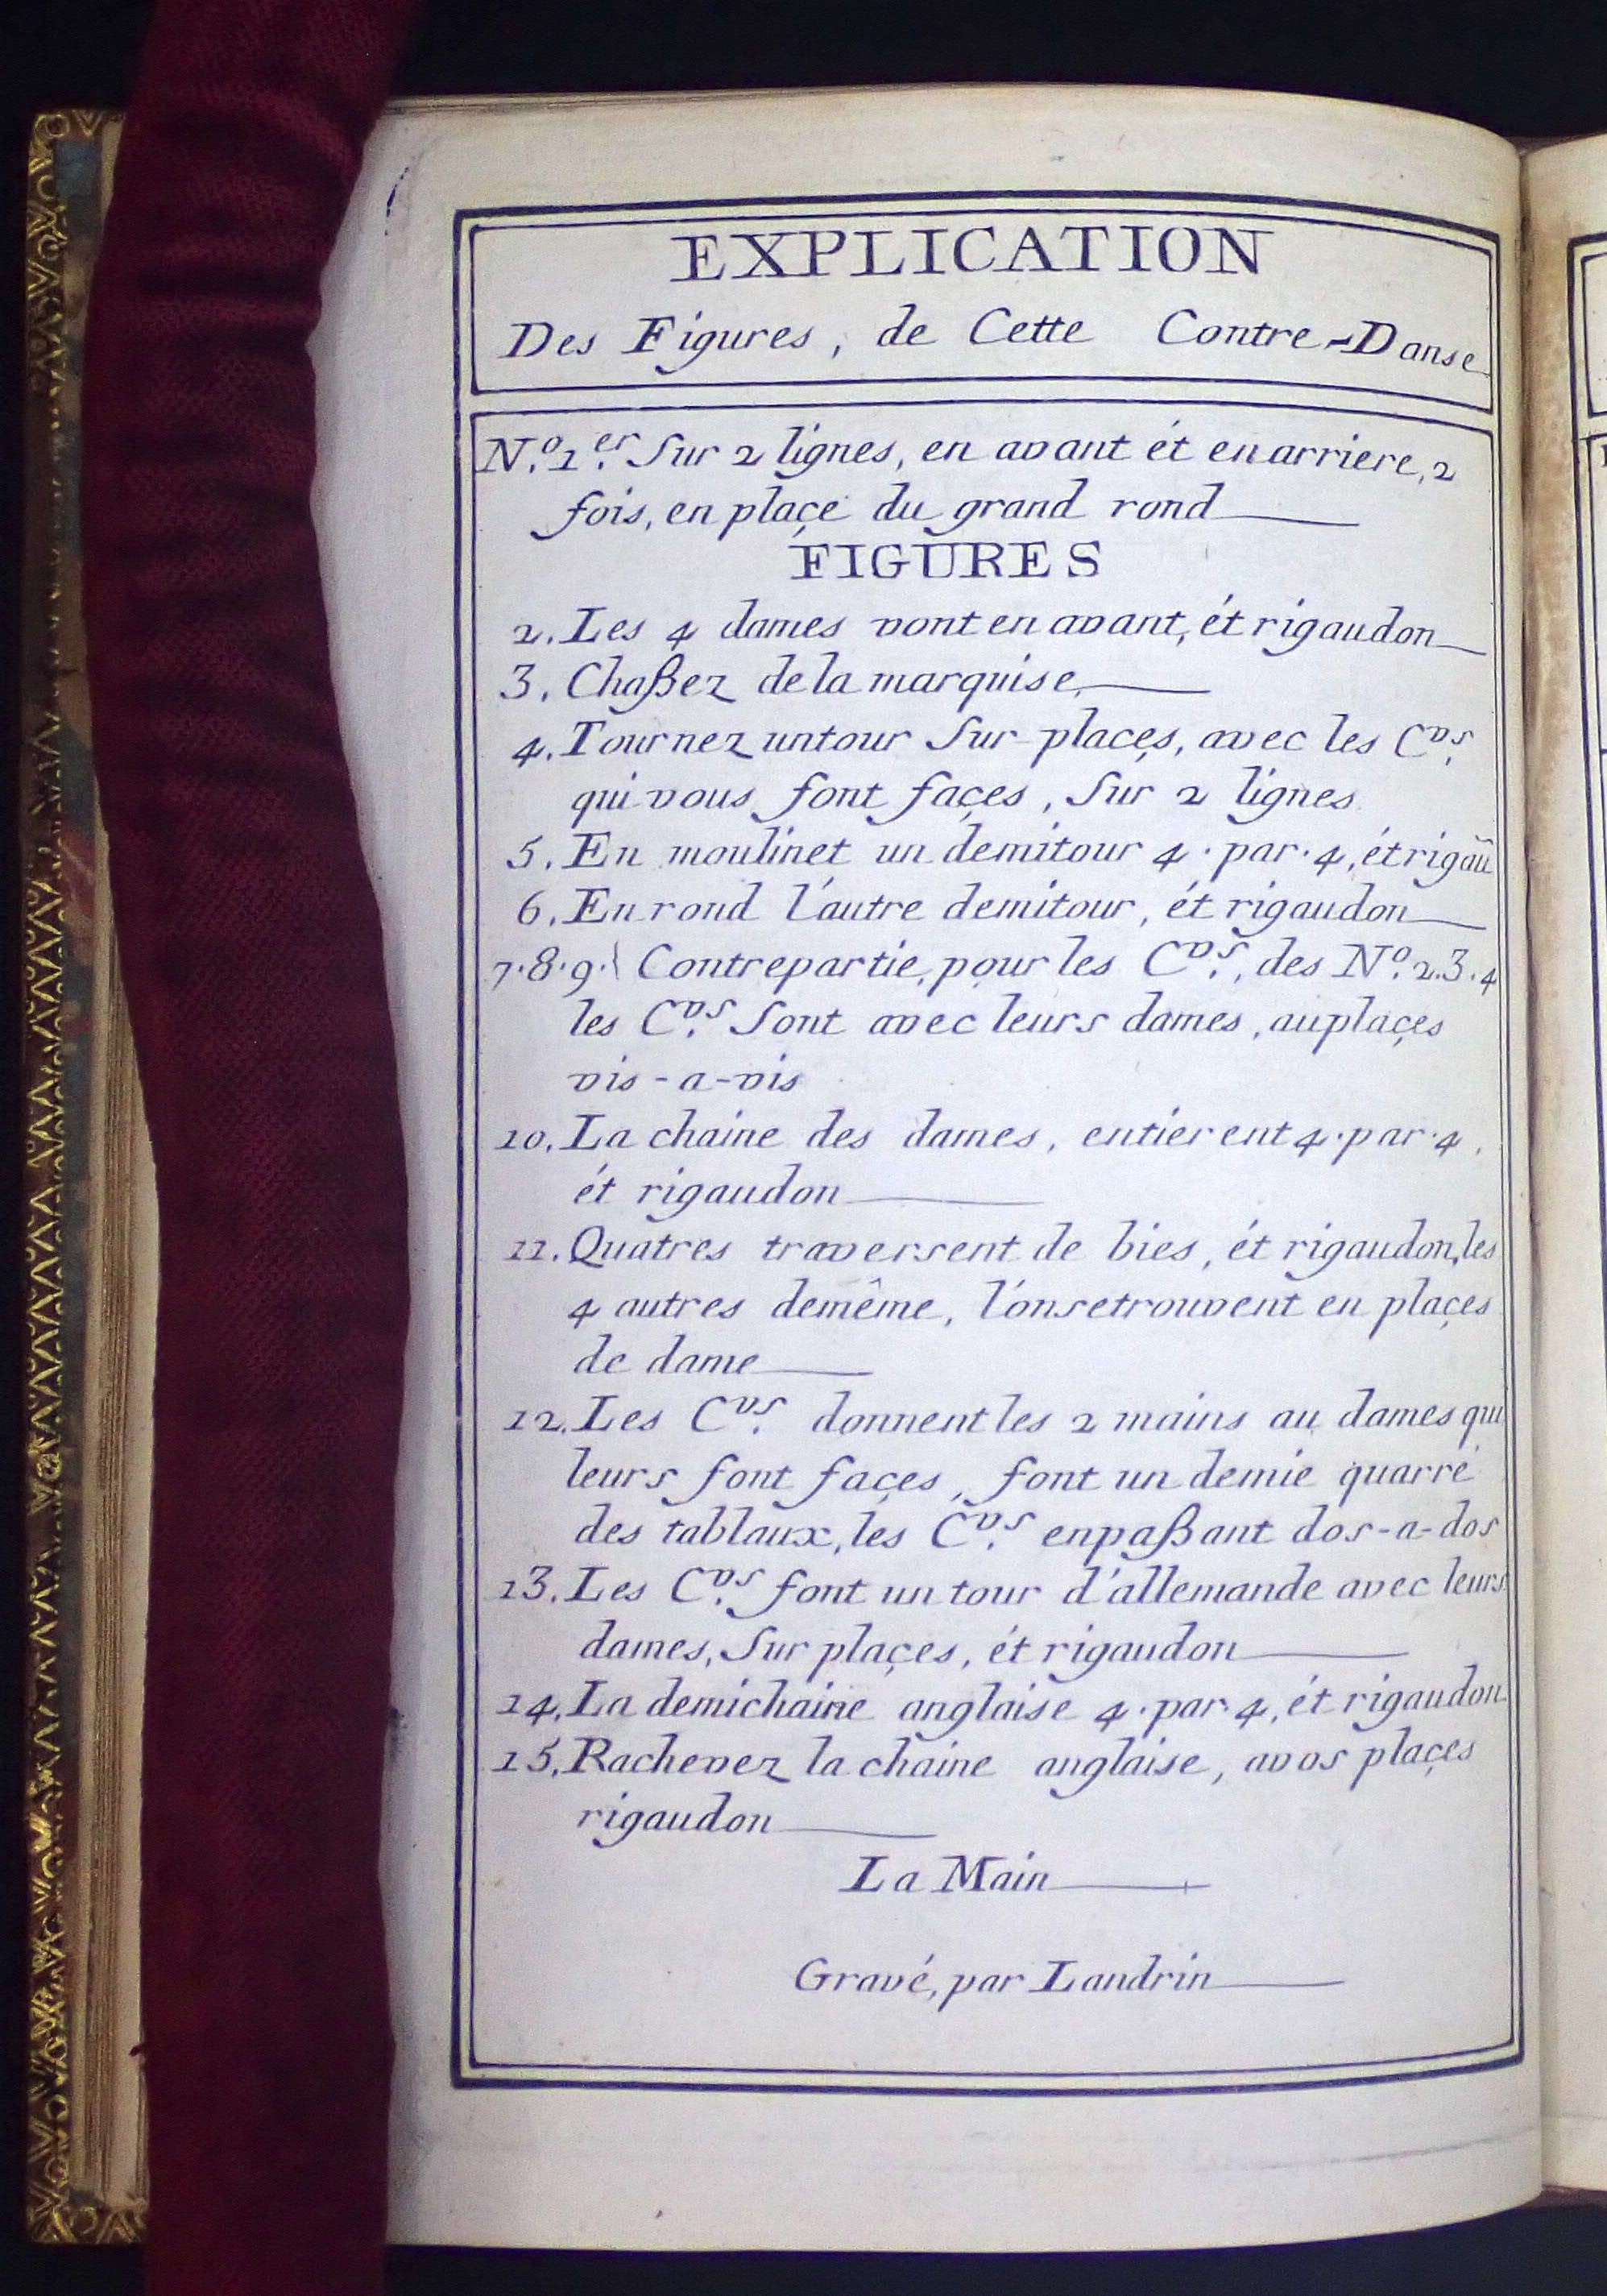 EXPLICATION
Des Figures, de Cette Contre-Danse
N.º 1.er Sur 2 lignes, en avant ét en arriere, 2
fois, en plaçe du grand rond
FIGURES
2. Les 4 dames vont en avant, ét rigaudon
3. Chaßez de la marquise,
4. Tournez un tour Sur places, avec les C.vs
qui vous font façes, Sur 2 lignes
5. En moulinet un demitour 4. par. 4, ét rigaũ
6. En rond l'autre demitour, ét rigaudon
7.8.9.} Contrepartie, pour les C.vs, des N.º 2.3.4
les C.vs Sont avec leurs dames, au plaçes
vis-a-vis
10. La chaine des dames, entierent 4. par. 4,
ét rigaudon
11. Quatres traversent de bies, ét rigaudon, les
4 autres demême, l'onsetrouvent en plaçes
de dame
12. Les C.vs donnent les 2 mains au dames qui
leurs font façes, font un demie quarré
des tablaux, les C.vs enpaßant dos-a-dos
13. Les C.vs font un tour d'allemande avec leurs
dames, Sur plaçes, ét rigaudon
14. La demichaine anglaise 4. par. 4, ét rigaudon
15. Rachevez la chaine anglaise, avos plaçes
rigaudon
La Main
Gravé, par Landrin